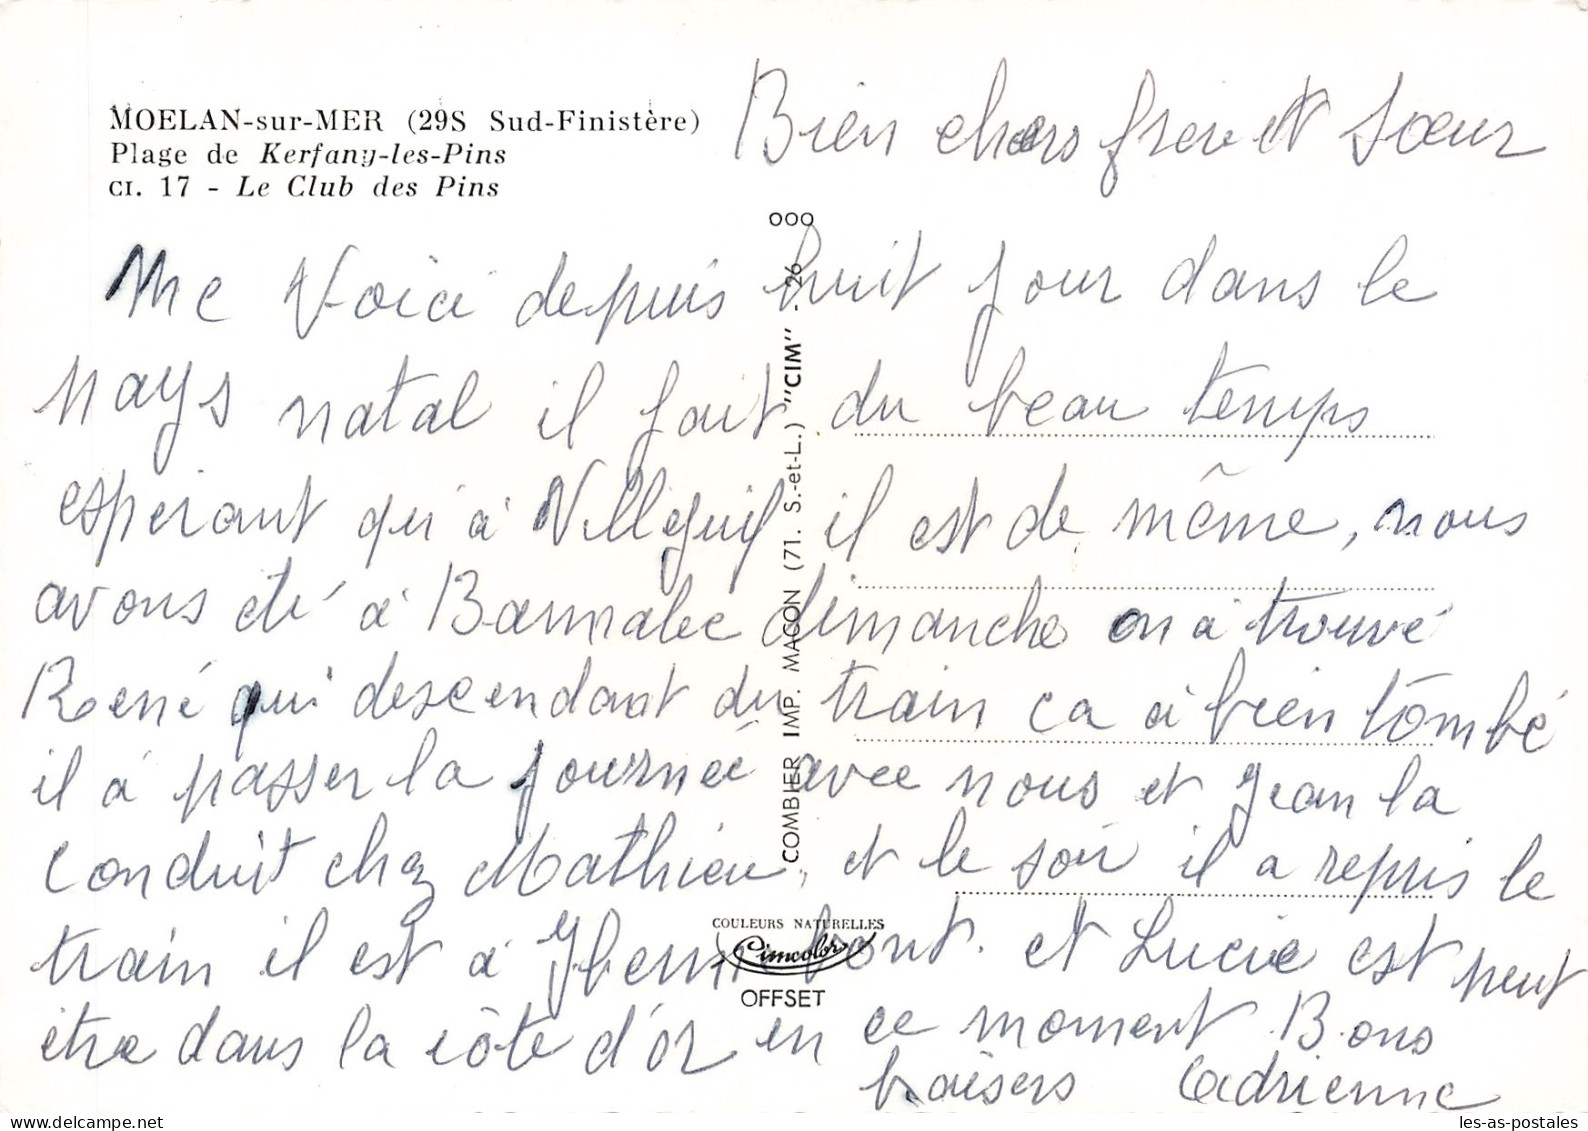 MOELAN-sur-MER (29S Sud-Finistère)
Plage de Kerfany-les-Pins
CI. 17 - Le Club des Pins
Bien chers frere et Sœur
Me Voici depuis huit jour dans le
pays natal il fait du beau temps
esperant qu'à Villeguif il est de même, nous
avons été à Bannalec dimanche on a trouvé
René qui descendant du train ca à bien tombé
il à passer la journeé avec nous et Jean la
conduit chez Mathieu, et le soir il a repris le
train il est à Hennebont. et Lucie est peut
être dans la côte d'or en ce moment Bons
baisers Adrienne
COMBIER IMP. MACON (71. S.-et-L.) "CIM" - 26
ooo
COULEURS NATURELLES
Cimcolor
OFFSET
les-as-postales